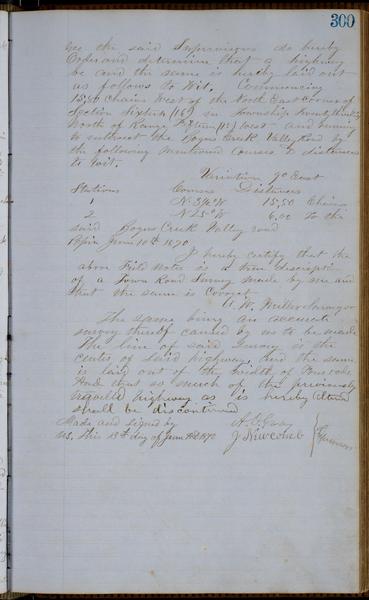 300
We the said Supervisors do hereby
Order and determine that a highway
be and the same is hereby laid out
as follows to Wit. Commencing
15.50 Chains West of the North East Corner of
Section Sixteen (16) in Township Twenty
North of Range Fifteen (15) West and running
to intersect the Bogus Creek Valley Road by
the following mentioned courses & distances
to wit.
Variation 9° East
Stations Courses Distances
1 N 31½° W 15,50 Chains
2 N 25° W 6.00 To the
said Bogus Creek Valley road
Pepin June 10th 1870
I hereby certify that the
above Field Notes is a true
of a Town Road Survey made by me and
that the same is Correct
A. W. Miller Surveyor
The same being an accurate
survey thereof caused by us to be made
The line of said Survey is the
center of said highway, and the same
is laid out of the width of Four rods
And that so much of the previously
highway as is hereby altered
shall be discontinued
Made and signed by
us, this 13th day of June AD 1870
J Newcomb
Supervisors